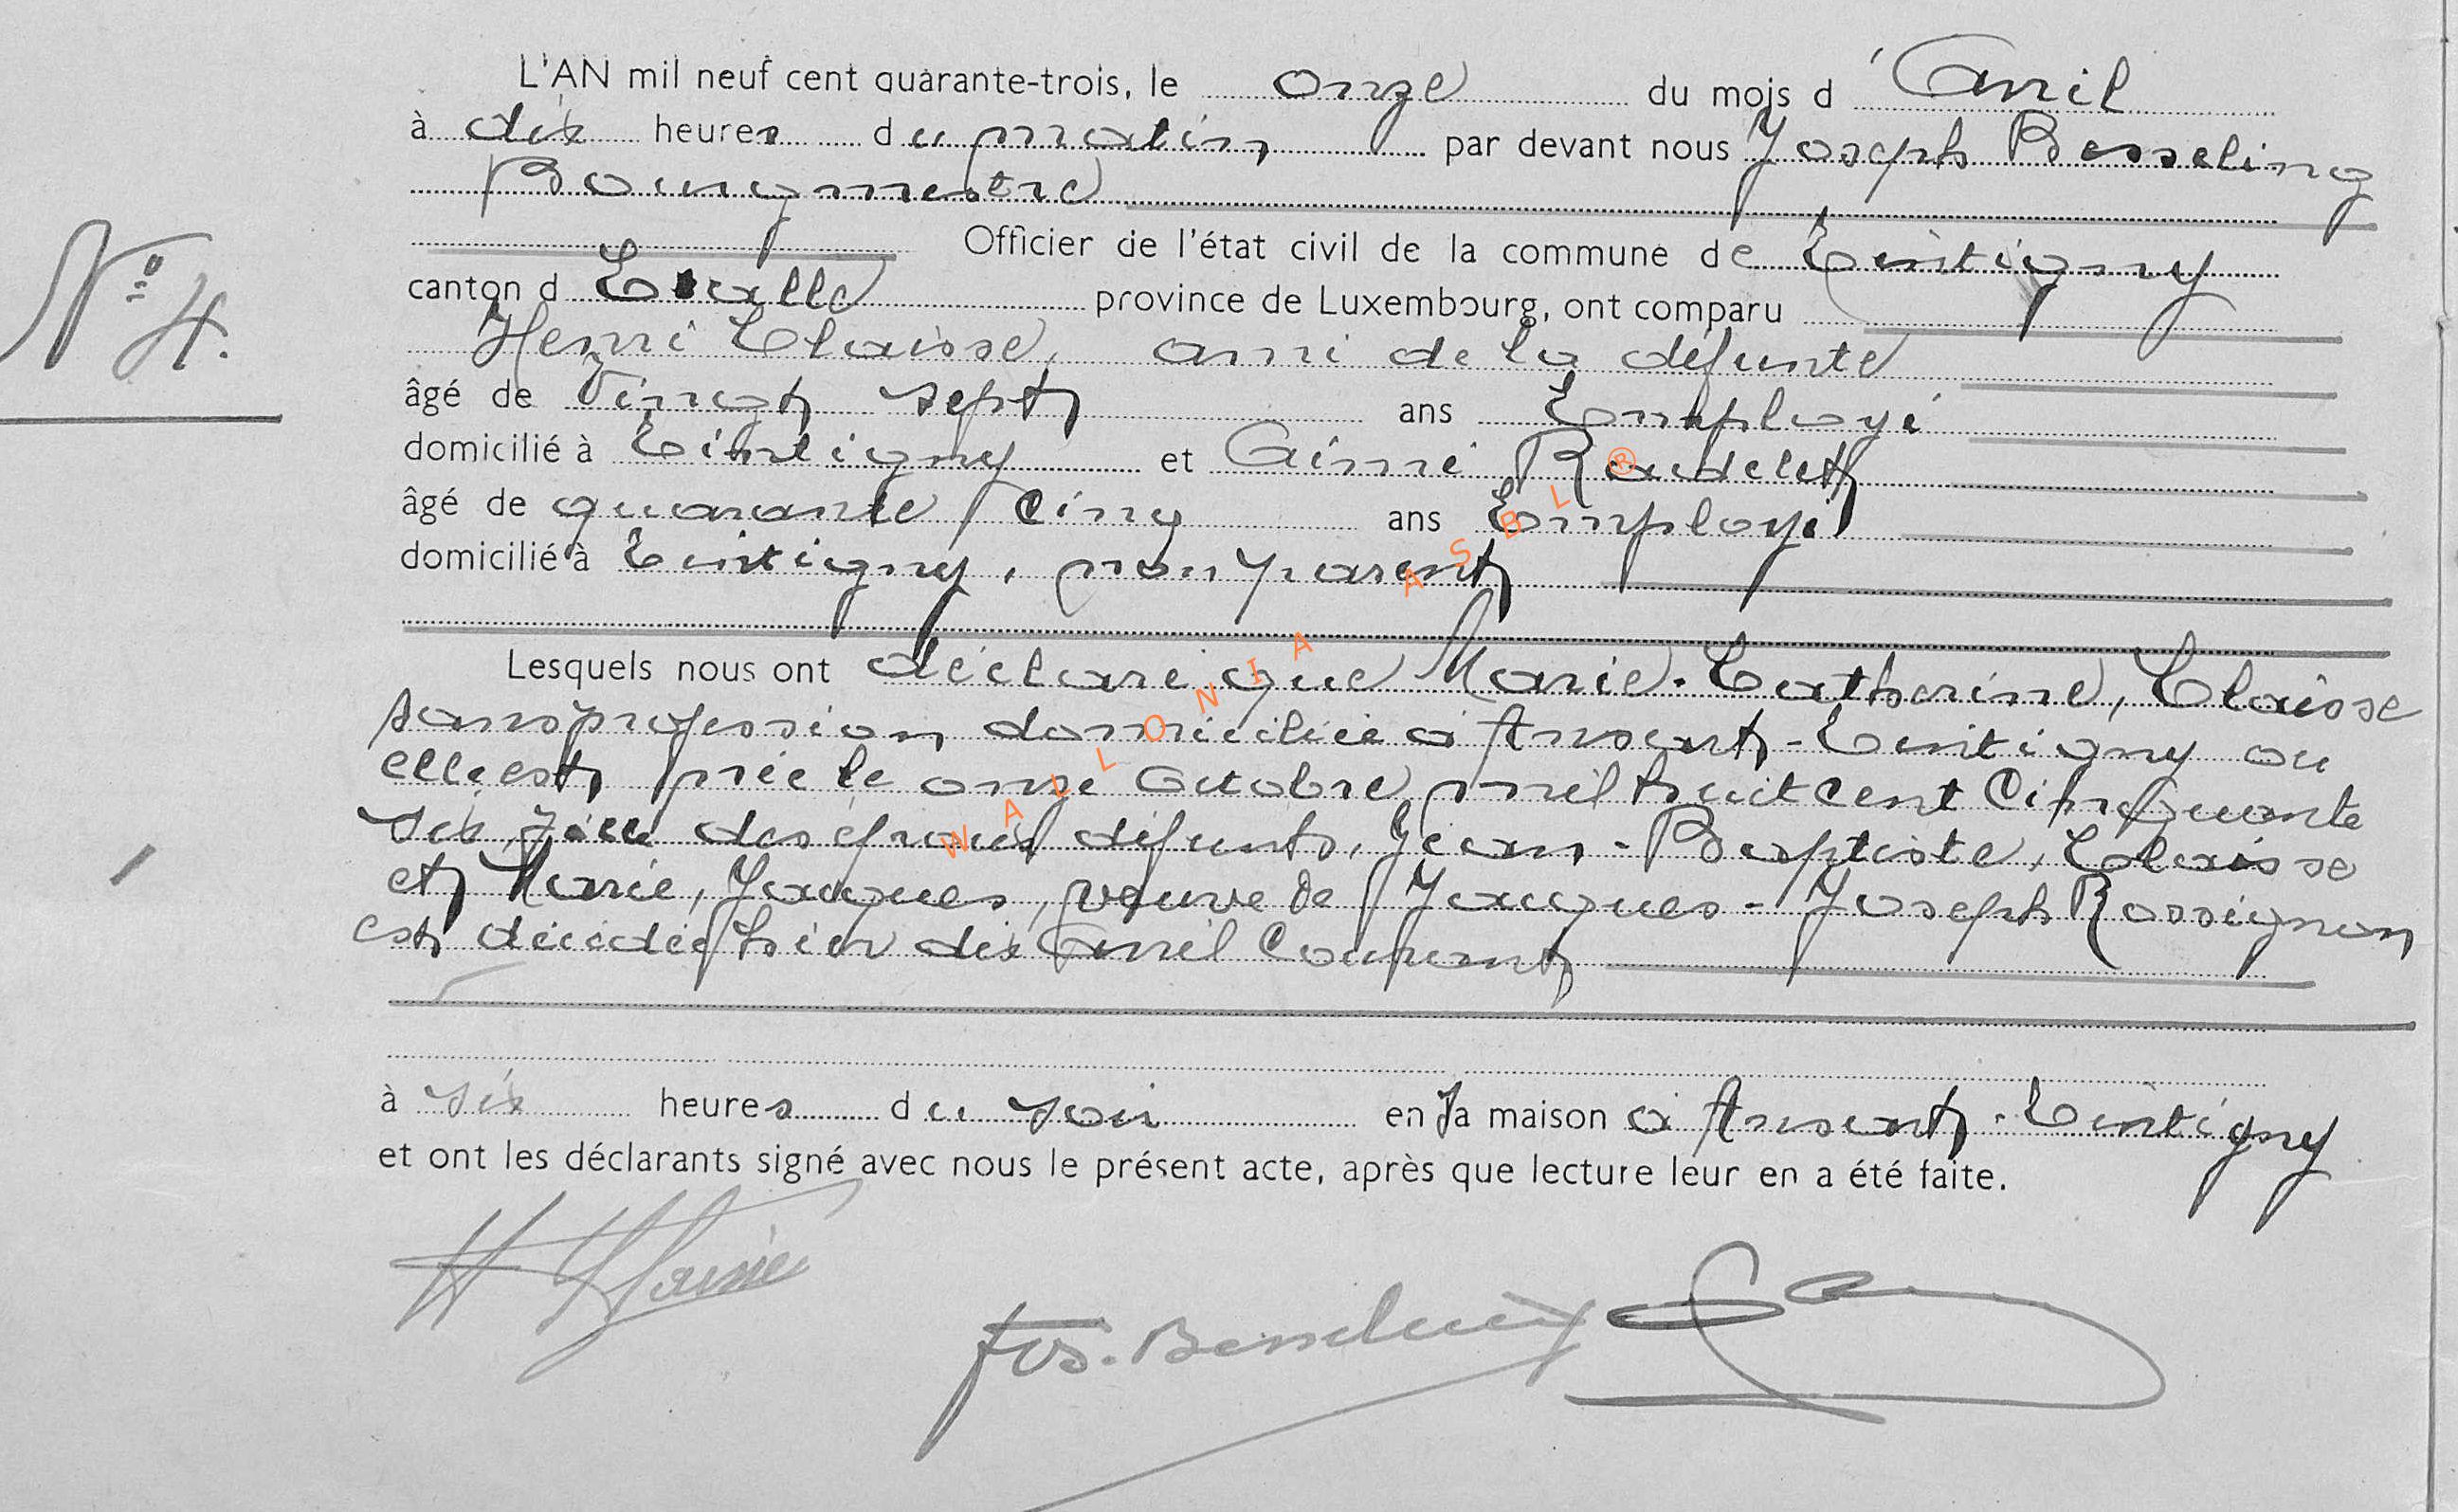 L'AN mil neuf cent quarante-trois, le onze du mois d'Avril
à dix heures du matin par devant nous Joseph Besseling
Bourgmestre
Officier de l'état civil de la commune de Tintigny
N° 4.
canton d'Etalle province de Luxembourg, ont comparu
Henri Claisse, ami de la défunte
âgé de vingt sept ans Employé
domicilié à Tintigny et Aimé Roudelet
âgé de quarante cinq ans Employé
domicilié à Tintigny, non parent
Lesquels nous ont déclaré que Marie-Catherine, Claisse
sans profession domiciliée à Ansart-Tintigny ou
elle est née le onze Octobre mil huit cent Cinquante
six, fille des époux défunts, Jean-Baptiste, Claisse
et Marie, Jacques, veuve de Jacques-Joseph Rossignon
est décédée hier dix Avril Courant
à six heures du soir en sa maison à Ansart-Tintigny
et ont les déclarants signé avec nous le présent acte, après que lecture leur en a été faite.
H Claisse
Jos. Besseling
WALLONIA ASBL ®